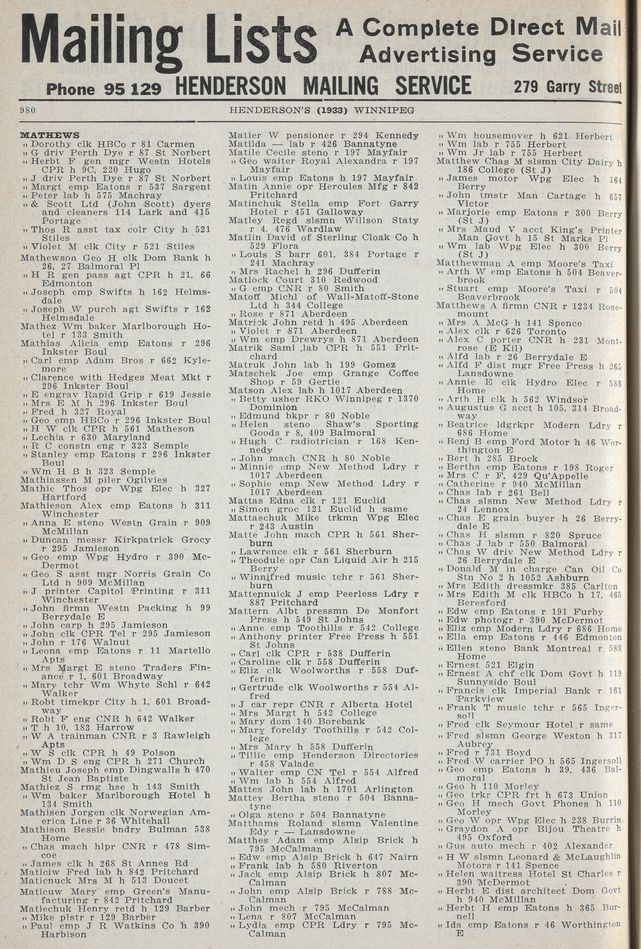 Mailing Lists
A Complete Direct Mail
Advertising Service
Phone 95 129 HENDERSON MAILING SERVICE 279 Garry Street
980 HENDERSON'S (1933) WINNIPEG
MATHEWS
" Dorothy clk HBCo r 81 Carmen
" G driv Perth Dye r 87 St Norbert
" Herbt F gen mgr Westn Hotels
CPR h 9C, 220 Hugo
" J driv Perth Dye r 87 St Norbert
" Margt emp Eatons r 537 Sargent
" Peter lab h 575 Machray
" & Scott Ltd (John Scott) dyers
and cleaners 114 Lark and 415
Portage
" Thos R asst tax colr City h 521
Stiles
" Violet M clk City r 521 Stiles
Mathewson Geo H clk Dom Bank h
26, 27 Balmoral Pl
" H H gen pass agt CPR h 21, 66
Edmonton
" Joseph emp Swifts h 162 Helms-
dale
" Joseph W purch agt Swifts r 162
Helmsdale
Mathez Wm baker Marlborough Ho-
tel r 133 Smith
Mathias Alicia emp Eatons r 296
Inkster Boul
" Carl emp Adam Bros r 662 Kyle-
more
" Clarence with Hedges Meat Mkt r
296 Inkster Boul
" E engrav Rapid Grip r 619 Jessie
" Mrs E M h 296 Inkster Boul
" Fred h 327 Royal
" Geo emp HBCo r 296 Inkster Boul
" H W clk CPR h 561 Matheson
" Lechia r 630 Maryland
" R C constn eng r 323 Semple
" Stanley emp Eatons r 296 Inkster
Boul
" Wm H B h 323 Semple
Mathiassen M piler Ogilvies
Mathie Thos opr Wpg Elec h 327
Hartford
Mathieson Alex emp Eatons h 311
Winchester
" Anna E steno Westn Grain r 909
McMillan
" Duncan messr Kirkpatrick Grocy
r 295 Jamieson
" Geo emp Wpg Hydro r 390 Mc-
Dermot
" Geo S asst mgr Norris Grain Co
Ltd h 909 McMillan
" J printer Capitol Printing r 311
Winchester
" John firmn Westn Packing h 99
Berrydale E
" John carp h 295 Jamieson
" John clk CPR Tel r 295 Jamieson
" John r 176 Walnut
" Leona emp Eatons r 11 Martello
Apts
" Mrs Margt E steno Traders Fin-
ance r 1, 601 Broadway
" Mary tchr Wm Whyte Schl r 642
Walker
" Robt timekpr City h 1, 601 Broad-
way
" Robt F eng CNR h 642 Walker
" T h 10, 183 Harrow
" W A trainman CNR r 3 Rawleigh
Apts
" W S clk CPR h 49 Polson
" Wm D S eng CPR h 271 Church
Mathieu Joseph emp Dingwalls h 470
St Jean Baptiste
Mathiez S rng hse h 143 Smith
" Wm baker Marlborough Hotel h
134 Smith
Mathisen Jorgen clk Norwegian Am-
erica Line r 36 Whitehall
Mathison Bessie bndry Bulman 538
Home
" Chas mach hlpr CNR r 478 Sim-
coe
" James clk h 268 St Annes Rd
Maticiw Fred lab h 842 Pritchard
Maticnuck Mrs M h 513 Doucet
Maticuw Mary emp Green's Manu-
facturing r 842 Pritchard
Matiechuk Henry retd h 129 Barber
" Mike plstr r 129 Barber
" Paul emp J R Watkins Co h 390
Harbison
Matier W pensioner r 294 Kennedy
Matilda — lab r 426 Bannatyne
Matile Cecile steno r 197 Mayfair
" Geo waiter Royal Alexandra r 197
Mayfair
" Louis emp Eatons h 197 Mayfair
Matin Annie opr Hercules Mfg r 842
Pritchard
Matinchuk Stella emp Fort Garry
Hotel r 451 Galloway
Matley Regd slsmn Willson Staty
r 4, 476 Wardlaw
Matlin David of Sterling Cloak h
529 Flora
" Louis S barr 601, 384 Portage r
241 Machray
" Mrs Rachel h 296 Dufferin
Matlock Court 310 Redwood
" G emp CNR r 80 Smith
Matoff Michl of Wall-Matoff-Stone
Ltd h 344 College
" Rose r 871 Aberdeen
Matrick John retd h 495 Aberdeen
" Violet r 871 Aberdeen
" Wm emp Drewrys h 871 Aberdeen
Matrik Saml lab CPR h 551 Prit-
chard
Matruk John lab h 199 Gomez
Matschek Joe emp Grange Coffee
Shop r 59 Gertie
Matson Alex lab h 1017 Aberdeen
" Betty usher RKO Winnipeg r 1370
Dominion
" Edmund bkpr r 80 Noble
" Helen steno Shaw's Sporting
Goods r 8, 409 Balmoral
" Hugh C radiotrician r 168 Ken-
nedy
" John mach CNR h 80 Noble
" Minnie emp New Method Ldry r
1017 Aberdeen
" Sophie emp New Method Ldry r
1017 Aberdeen
Mattas Edna clk r 121 Euclid
" Simon groc 121 Euclid h same
Mattaschuk Mike trkmn Wpg Elec
r 243 Austin
Matte John mach CPR h 561 Sher-
burn
" Lawrence clk r 561 Sherburn
" Theodule opr Can Liquid Air h 215
Berry
" Winifred music tchr r 561 Sher-
burn
Mattennuick J emp Peerless Ldry r
887 Pritchard
Mattern Albt pressmn De Monfort
Press h 549 St Johns
" Anne emp Toothills r 542 College
" Anthony printer Free Press h 551
St Johns
" Carl clk CPR r 538 Dufferin
" Caroline clk r 558 Dufferin
" Eliz clk Woolworths r 558 Duf-
ferin
" Gertrude clk Woolworths r 554 Al-
fred
" J car repr CNR r Alberta Hotel
" Mrs Margt h 542 College
" Mary dom 140 Borebank
" Mary foreldy Toothills r 542 Col-
lege
" Mrs Mary h 558 Dufferin
" Tillie emp Henderson Directories
r 458 Valade
" Walter emp CN Tel r 554 Alfred
" Wm lab h 554 Alfred
Mattes John lab h 1701 Arlington
Mattey Bertha steno r 504 Banna-
tyne
" Olga steno r 504 Bannatyne
Matthams Roland slsmn Valentine
Edy r — Lansdowne
Matthes Adam emp Alsip Brick h
795 McCalman
" Edw emp Alsip Brick h 647 Nairn
" Frank lab h 580 Riverton
" Jack emp Alsip Brick h 807 Mc-
Calman
" John emp Alsip Brick r 788 Mc-
Calman
" John mech r 795 McCalman
" Lena r 807 McCalman
" Lydia emp CPR Ldry r 795 Mc-
Calman
" Wm housemover h 621 Herbert
" Wm lab r 755 Herbert
" Wm Jr lab r 755 Herbert
Matthew Chas M slsmn City Dairy h
186 College (St J)
" James motor Wpg Elec h 164
Berry
" John tmstr Man Cartage h 657
Victor
" Marjorie emp Eatons r 300 Berry
(St J)
" Mrs Maud V acct King's Printer
Man Govt h 15 St Marks Pl
" Wm lab Wpg Elec h 300 Berry
(St J)
Matthewman A emp Moore's Taxi
" Arth W emp Eatons h 504 Beaver-
brook
" Stuart emp Moore's Taxi r 504
Beaverbrook
Matthews A firmn CNR r 1234 Rose-
mount
" Mrs A McG h 141 Spence
" Alex clk r 626 Toronto
" Alex C porter CNR h 231 Mont-
rose (E Kil)
" Alfd lab r 26 Berrydale E
" Alfd F dist mgr Free Press h 265
Lansdowne
" Annie E clk Hydro Elec r 588
Home
" Arth H clk h 562 Windsor
" Augustus G acct h 105, 314 Broad-
way
" Beatrice ldgrkpr Modern Ldry r
686 Home
" Benj B emp Ford Motor h 46 Wor-
thington E
" Bert h 285 Brock
" Bertha emp Eatons r 198 Roger
" Mrs C r F, 429 Qu'Appelle
" Catherine r 940 McMillan
" Chas lab r 261 Bell
" Chas slsmn New Method Ldry r
24 Lennox
" Chas E grain buyer h 26 Berry-
dale E
" Chas H slsmn r 820 Spruce
" Chas J lab r 550 Balmoral
" Chas W driv New Method Ldry r
26 Berrydale E
" Donald M in charge Can Oil Co
Stn No 2 h 1052 Ashburn
" Mrs Edith dressmkr 385 Carlton
" Mrs Edith M clk HBCo h 17, 465
Beresford
" Edw emp Eatons r 191 Furby
" Edw photogr r 390 McDermot
" Eliz emp Modern Ldry r 686 Home
" Ella emp Eatons r 446 Edmonton
" Ellen steno Bank Montreal r 588
Home
" Ernest 521 Elgin
" Ernest A chf clk Dom Govt h 119
Sunnyside Boul
" Francis clk Imperial Bank r 161
Parkview
" Frank T music tchr r 565 Inger-
soll
" Fred clk Seymour Hotel r same
" Fred slsmn George Weston h 317
Aubrey
" Fred r 731 Boyd
" Fred W carrier PO h 565 Ingersoll
" Geo emp Eatons h 39, 436 Bal-
moral
" Geo h 110 Morley
" Geo trkr CPR frt h 673 Union
" Geo H mech Govt Phones h 110
Morley
" Geo W opr Wpg Elec h 238 Burrin
" Graydon A opr Bijou Theatre h
495 Oxford
" Gus auto mech r 402 Alexander
" H W slsmn Leonard & McLaughlin
Motors r 141 Spence
" Helen waitress Hotel St Charles r
390 McDermot
" Herbt E dist architect Dom Govt
h 940 McMillan
" Herbt H emp Eatons h 365 Bur-
nell
" Ida emp Eatons r 46 Worthington
E